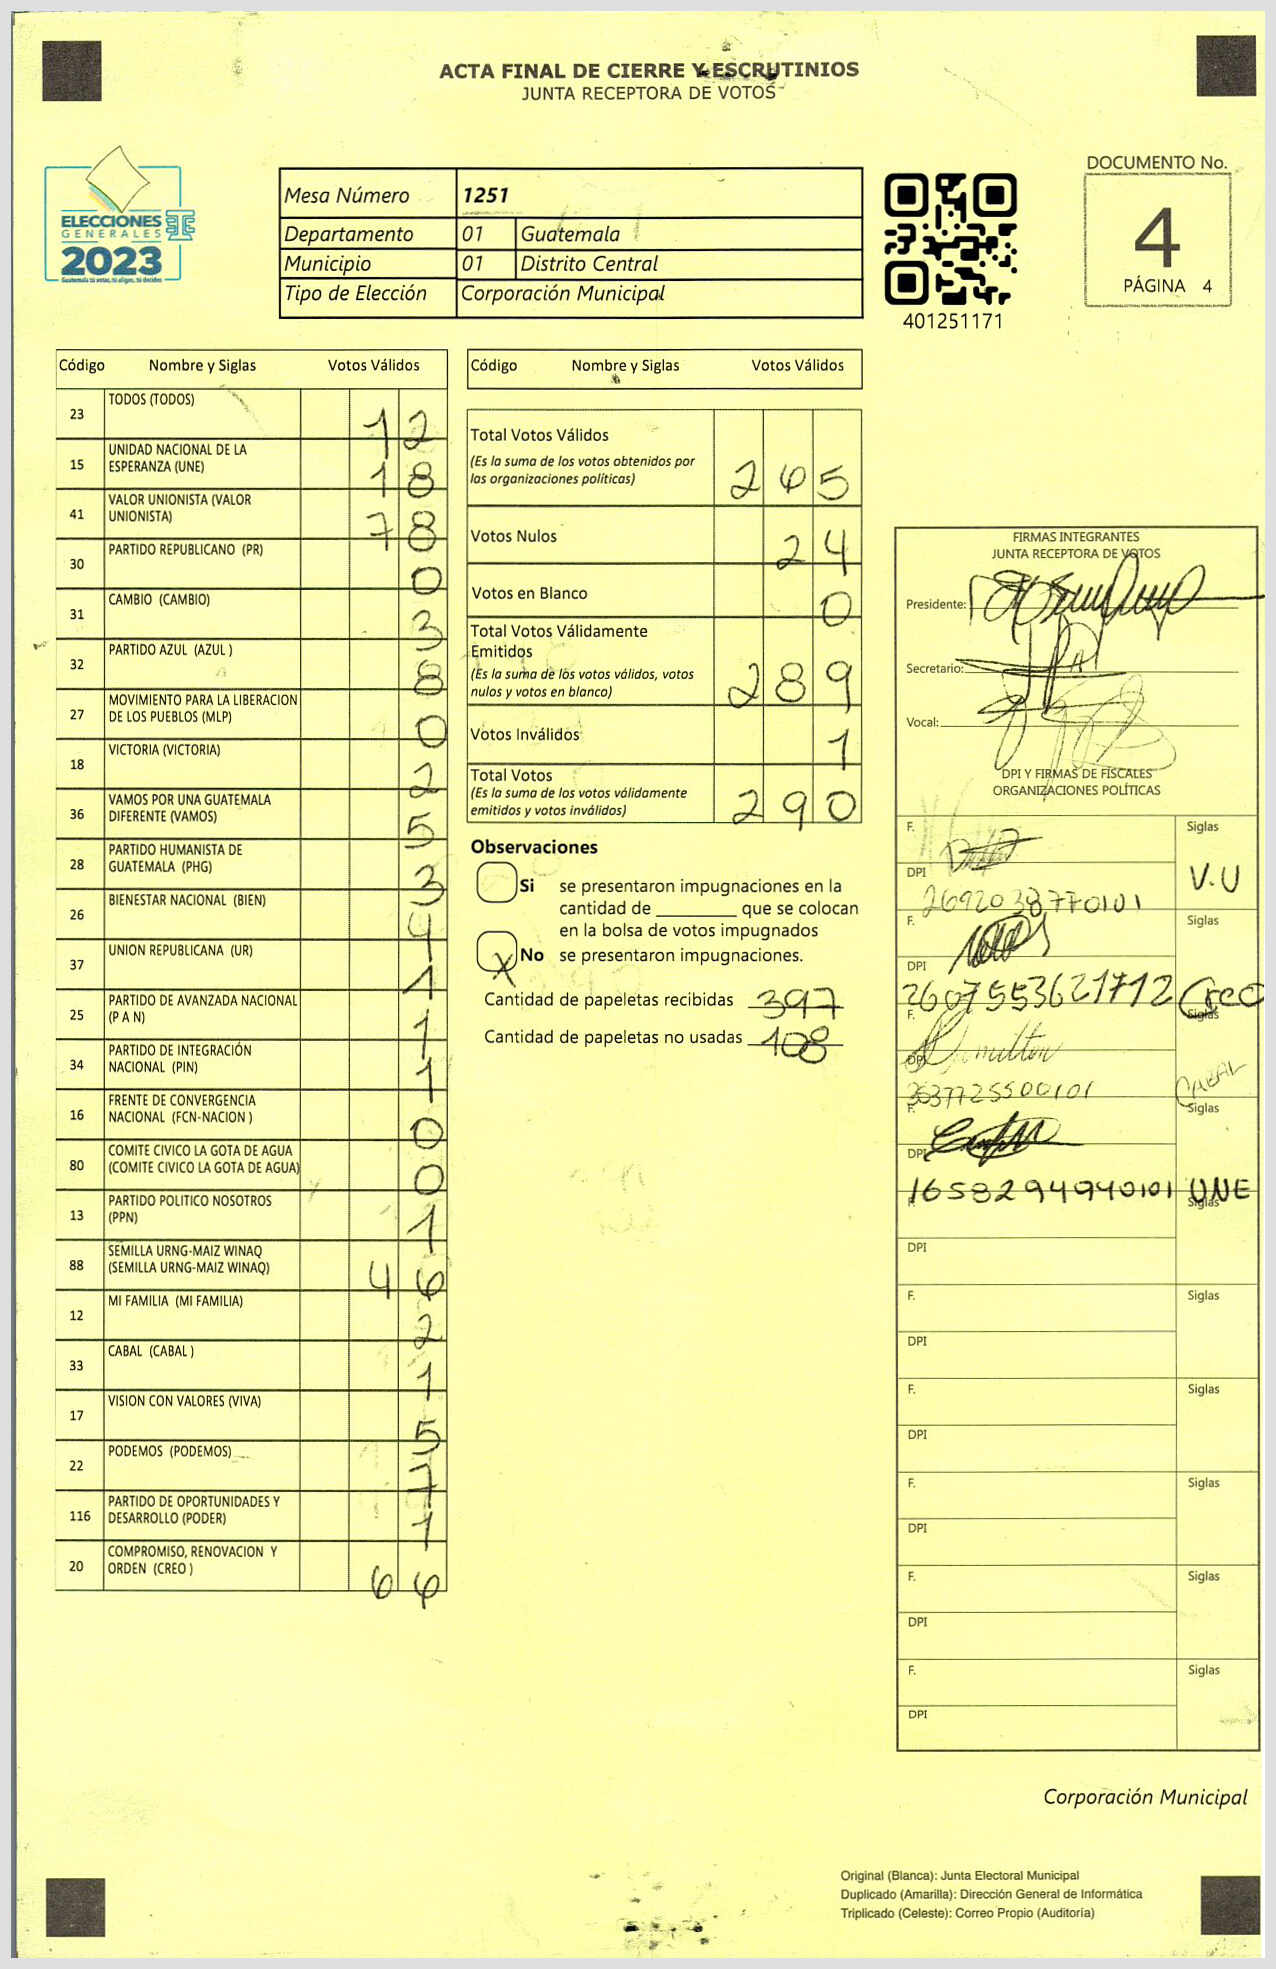 ACTA FINAL DE CIERRE Y ESCRUTINIOS
JUNTA RECEPTORA DE VOTOS
ELECCIONES
GENERALES
2023
Guatemala tú votas, tú eliges, tú decides
Mesa Número 1251
Departamento 01 Guatemala
Municipio 01 Distrito Central
Tipo de Elección Corporación Municipal
401251171
DOCUMENTO No.
4
PÁGINA 4
Código Nombre y Siglas Votos Válidos
23 TODOS (TODOS) 12
15 UNIDAD NACIONAL DE LA
ESPERANZA (UNE) 18
41 VALOR UNIONISTA (VALOR
UNIONISTA) 78
30 PARTIDO REPUBLICANO (PR) 0
31 CAMBIO (CAMBIO) 3
32 PARTIDO AZUL (AZUL ) 8
27 MOVIMIENTO PARA LA LIBERACION
DE LOS PUEBLOS (MLP) 0
18 VICTORIA (VICTORIA) 2
36 VAMOS POR UNA GUATEMALA
DIFERENTE (VAMOS) 5
28 PARTIDO HUMANISTA DE
GUATEMALA (PHG) 3
26 BIENESTAR NACIONAL (BIEN) 4
37 UNION REPUBLICANA (UR) 1
25 PARTIDO DE AVANZADA NACIONAL
(P A N) 1
34 PARTIDO DE INTEGRACIÓN
NACIONAL (PIN) 1
16 FRENTE DE CONVERGENCIA
NACIONAL (FCN-NACION ) 0
80 COMITE CIVICO LA GOTA DE AGUA
(COMITE CIVICO LA GOTA DE AGUA) 0
13 PARTIDO POLITICO NOSOTROS
(PPN) 1
88 SEMILLA URNG-MAIZ WINAQ
(SEMILLA URNG-MAIZ WINAQ) 46
12 MI FAMILIA (MI FAMILIA) 2
33 CABAL (CABAL ) 1
17 VISION CON VALORES (VIVA) 5
22 PODEMOS (PODEMOS) 7
116 PARTIDO DE OPORTUNIDADES Y
DESARROLLO (PODER) 1
20 COMPROMISO, RENOVACION Y
ORDEN (CREO ) 66
Código Nombre y Siglas Votos Válidos
Total Votos Válidos
(Es la suma de los votos obtenidos por
las organizaciones políticas) 265
Votos Nulos 24
Votos en Blanco 0
Total Votos Válidamente
Emitidos
(Es la suma de los votos válidos, votos
nulos y votos en blanco) 289
Votos Inválidos 1
Total Votos
(Es la suma de los votos válidamente
emitidos y votos inválidos) 290
Observaciones
Si se presentaron impugnaciones en la
cantidad de ________ que se colocan
en la bolsa de votos impugnados
X No se presentaron impugnaciones.
Cantidad de papeletas recibidas 397
Cantidad de papeletas no usadas 108
FIRMAS INTEGRANTES
JUNTA RECEPTORA DE VOTOS
Presidente:
Secretario:
Vocal:
DPI Y FIRMAS DE FISCALES
ORGANIZACIONES POLÍTICAS
F. Siglas
DPI V.U
2692038770101
F. Siglas
DPI
2607553621712 Creo
F. Siglas
DPI
3037725500101 CABAL
F. Siglas
DPI
1658294940101 UNE
F. Siglas
DPI
F. Siglas
DPI
F. Siglas
DPI
F. Siglas
DPI
F. Siglas
DPI
F. Siglas
DPI
Corporación Municipal
Original (Blanca): Junta Electoral Municipal
Duplicado (Amarilla): Dirección General de Informática
Triplicado (Celeste): Correo Propio (Auditoría)